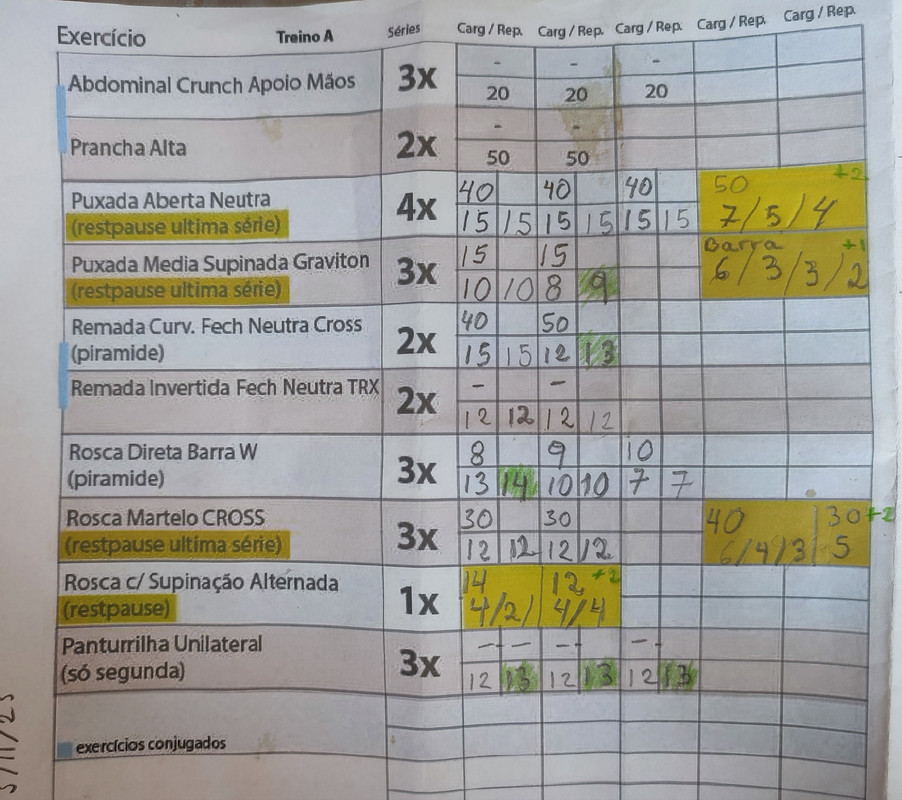 Exercício Treino A Séries Carg / Rep. Carg / Rep. Carg / Rep. Carg / Rep. Carg / Rep.
Abdominal Crunch Apoio Mãos 3x - - -
20 20 20
Prancha Alta 2x - -
50 50
Puxada Aberta Neutra 4x 40 40 40 50 +2
(restpause ultima série) 15 15 15 15 15 15 7/5/4
Puxada Media Supinada Graviton 3x 15 15 Barra +1
(restpause ultima série) 10 10 8 9 6/3/3/2
Remada Curv. Fech Neutra Cross 2x 40 50
(piramide) 15 15 12 13
Remada Invertida Fech Neutra TRX 2x - -
12 12 12 12
Rosca Direta Barra W 3x 8 9 10
(piramide) 13 14 10 10 7 7
Rosca Martelo CROSS 3x 30 30 40 30 +2
(restpause ultima série) 12 12 12 12 6/4/3 5
Rosca c/ Supinação Alternada 1x 14 12 +2
(restpause) 4/2/ 4/4
Panturrilha Unilateral 3x -- -- --
(só segunda) 12 13 12 13 12 13
exercícios conjugados